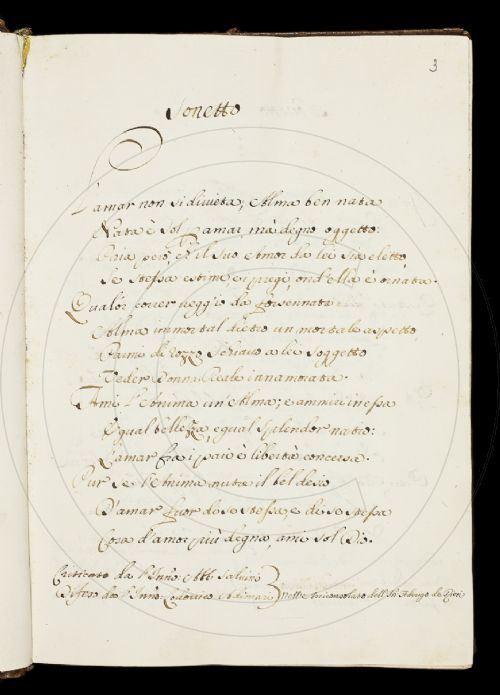 3
Sonetto
L'amar non si divieta; Alma ben nata
Nata è sol per amar, mà degno oggetto:
Pria però, ch'il suo Amor da lei sia eletto,
Se stessa estime, e i pregi, ond'ella è ornata.
Qualor correr veggio da forsennata
Alma immortal dietro un mortale aspetto,
Parmi di rozzo schiavo a lei soggetto
Veder Donna Reale innamorata.
Ami l'Anima un'Alma; e ammiri in essa
Egual bellezza, egual splendor natio:
L'amar fra i pari è libertà concessa.
Pur se l'Anima nutre il bel desio
D'amar fuor di se stessa, e di se stessa
Cosa d'amor più degna, ami sol Dio.
Criticato da l'Inno: Ab: Salvini
Difeso da l'Inno: Lodovico Adimari
nell'Arciconsolato dell'